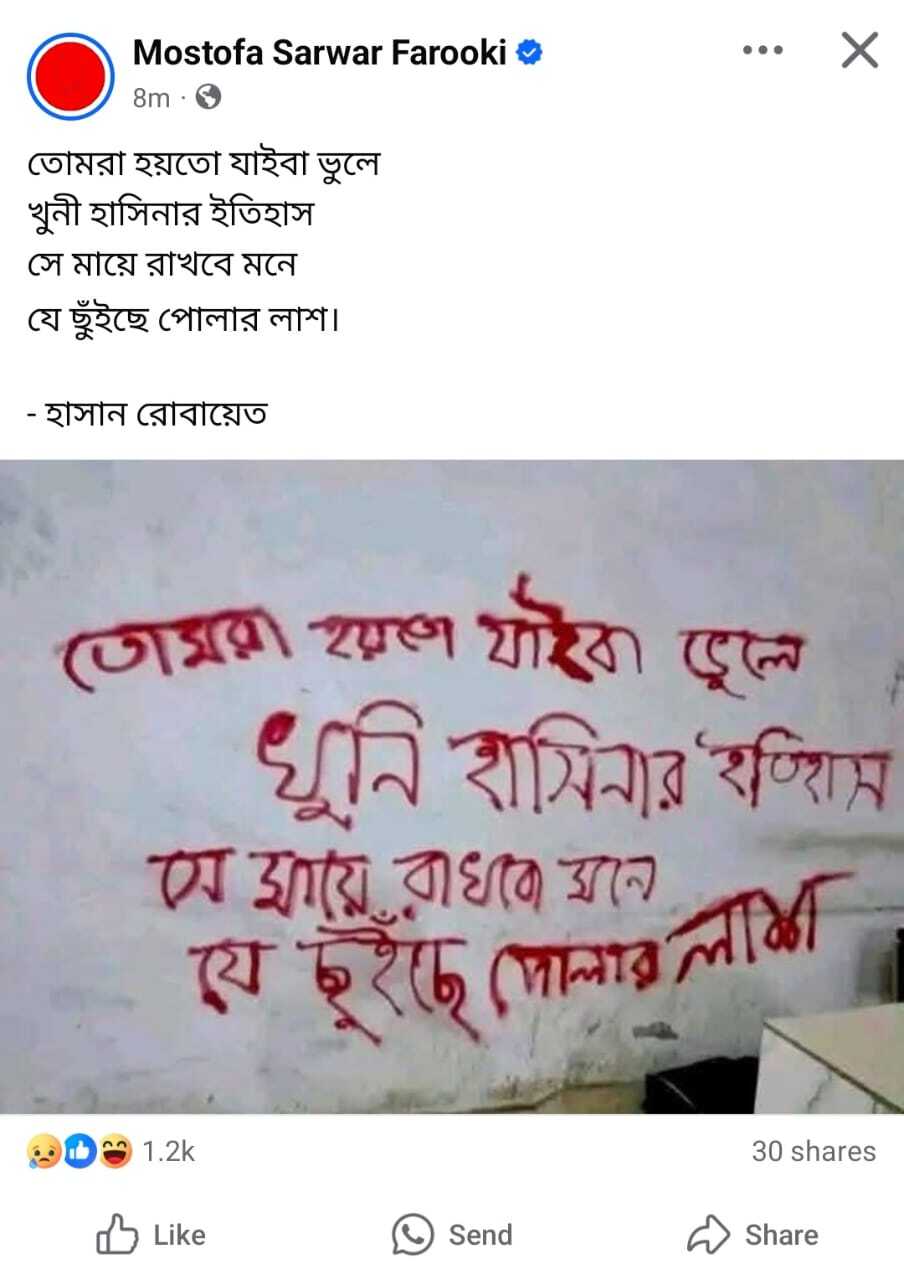 Mostofa Sarwar Farooki
8m ·
তোমরা হয়তো যাইবা ভুলে
খুনী হাসিনার ইতিহাস
সে মায়ে রাখবে মনে
যে ছুঁইছে পোলার লাশ।
- হাসান রোবায়েত
তোমরা হয়তো যাইবা ভুলে
খুনি হাসিনার ইতিহাস
সে মায়ে রাখবে মনে
যে ছুঁইছে পোলার লাশ
1.2k
30 shares
Like
Send
Share